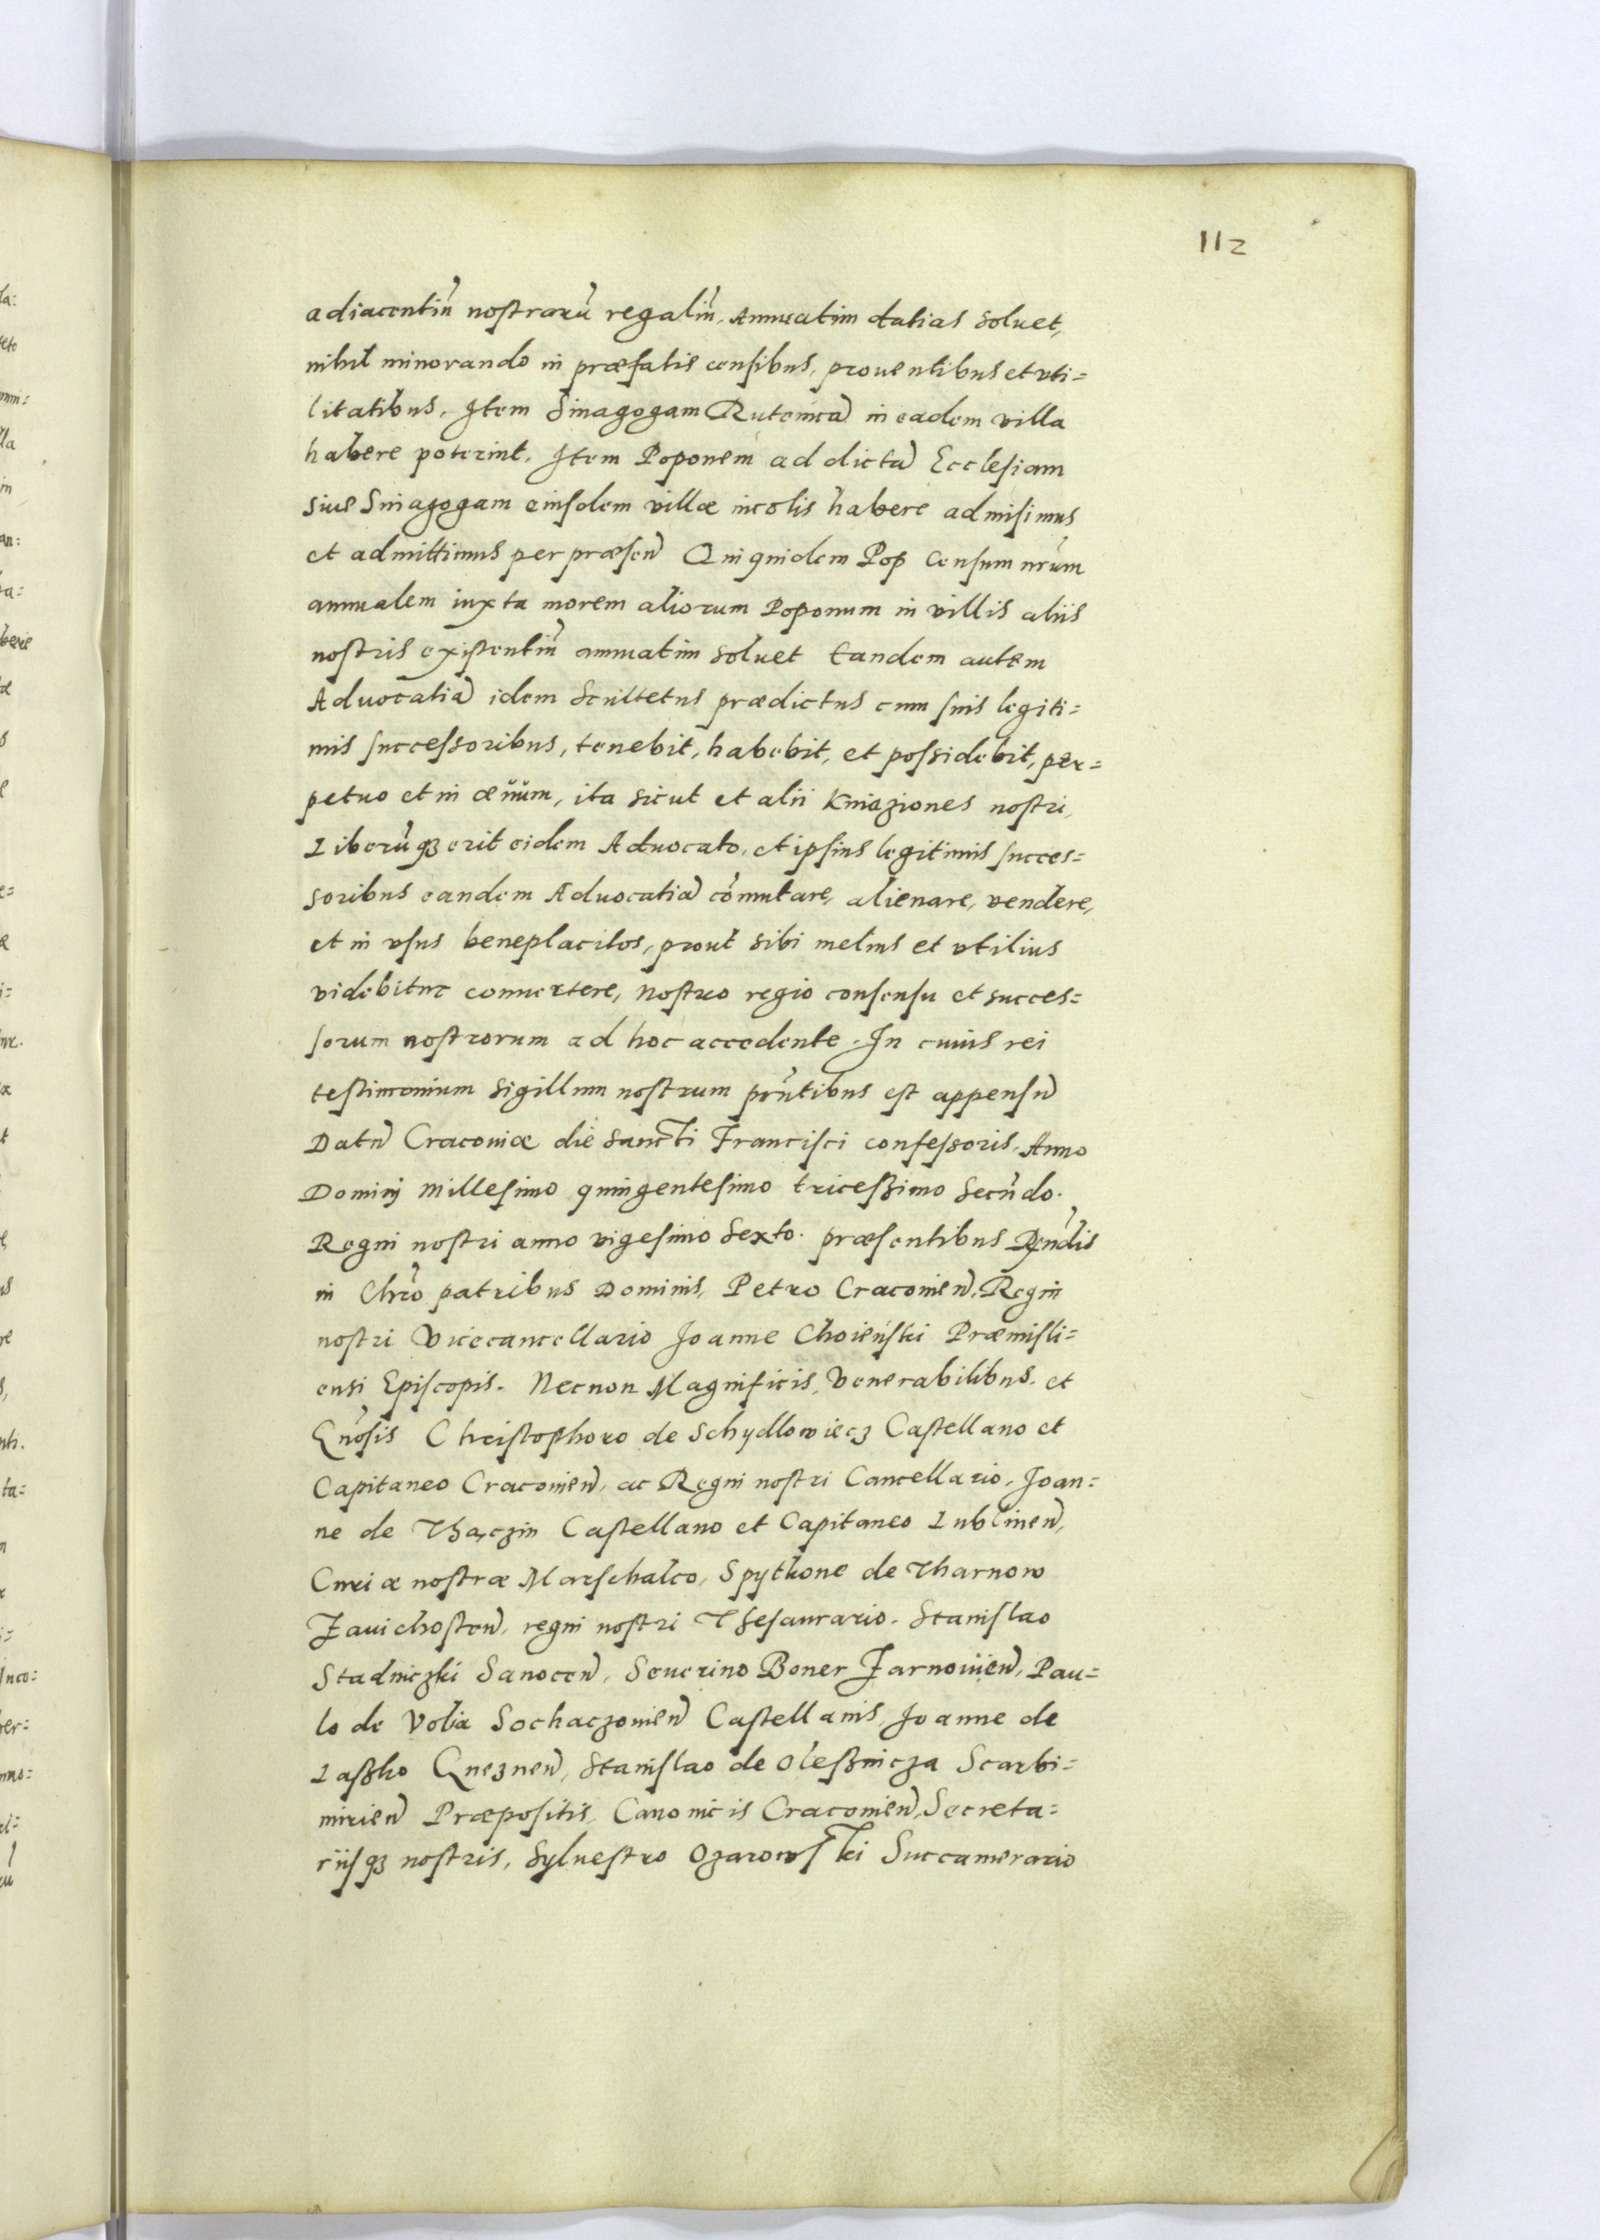 112
adiacentiũ nostrarũ regaliũ. Annuatim datias soluet,
nihil minorando in præfatis censibus, prouentibus et vti=
litatibus. Item Sinagogam Rutenicã in eadem villa
habere poterint. Item Poponem ad dictã Ecclesiam
siue Sinagogam eiusdem villæ incolis habere admisimus
et admittimus per præsen̄ Qui quidem Pop censum nr̃um
annualem iuxta morem aliorum Poponum in villis aliis
nostris existentiũ annuatim soluet tandem autem
Aduocatiã idem Scultetus prædictus cum suis legiti=
mis successoribus, tenebit, habebit, et possidebit, per=
petuo et in æuum, ita sicut et alii Kniaziones nostri,
Liberũqȝ erit eidem Aduocato, et ipsius legitimis succes=
soribus eandem Aduocatiã cõmutare, alienare, vendere,
et in vsus beneplacitos, prout sibi melius et vtilius
videbitur conuertere, nostro regio consensu et succes=
sorum nostrorum ad hoc accedente. In cuius rei
testimonium sigillum nostrum pñtibus est appensũ
Datũ Cracouiæ die sancti Francisci confessoris. Anno
Domini millesimo quingentesimo tricesimo secũdo.
Regni nostri anno vigesimo sexto. præsentibus Rñdis
in Chr̃o patribus Dominis, Petro Cracouien̄, Regni
nostri Vicecancellario Joanne Choieński Præmisli=
ensi Episcopis. Necnon Magnificis, Venerabilibus. et
Gñosis Christophoro de Schydlowiecz Castellano et
Capitaneo Cracouien̄, ac Regni nostri Cancellario. Joan=
ne de Thaczin Castellano et Capitaneo Lublinen̄,
Curiæ nostræ Marschalco, Spythone de Tharnow
Zauichosten̄, regni nostri Thesaurario. Stanislao
Stadniczki Sanocen̄, Seuerino Boner Zarnowien̄, Pau=
lo de Volia Sochaczouien̄ Castellanis, Joanne de
Laszko Gneznen̄, Stanislao de Olesznicza Scarbi=
mirien̄ Præpositis, Canonicis Cracouien̄, Secreta=
riisqȝ nostris, Syluestro Ozarowski Succamerario